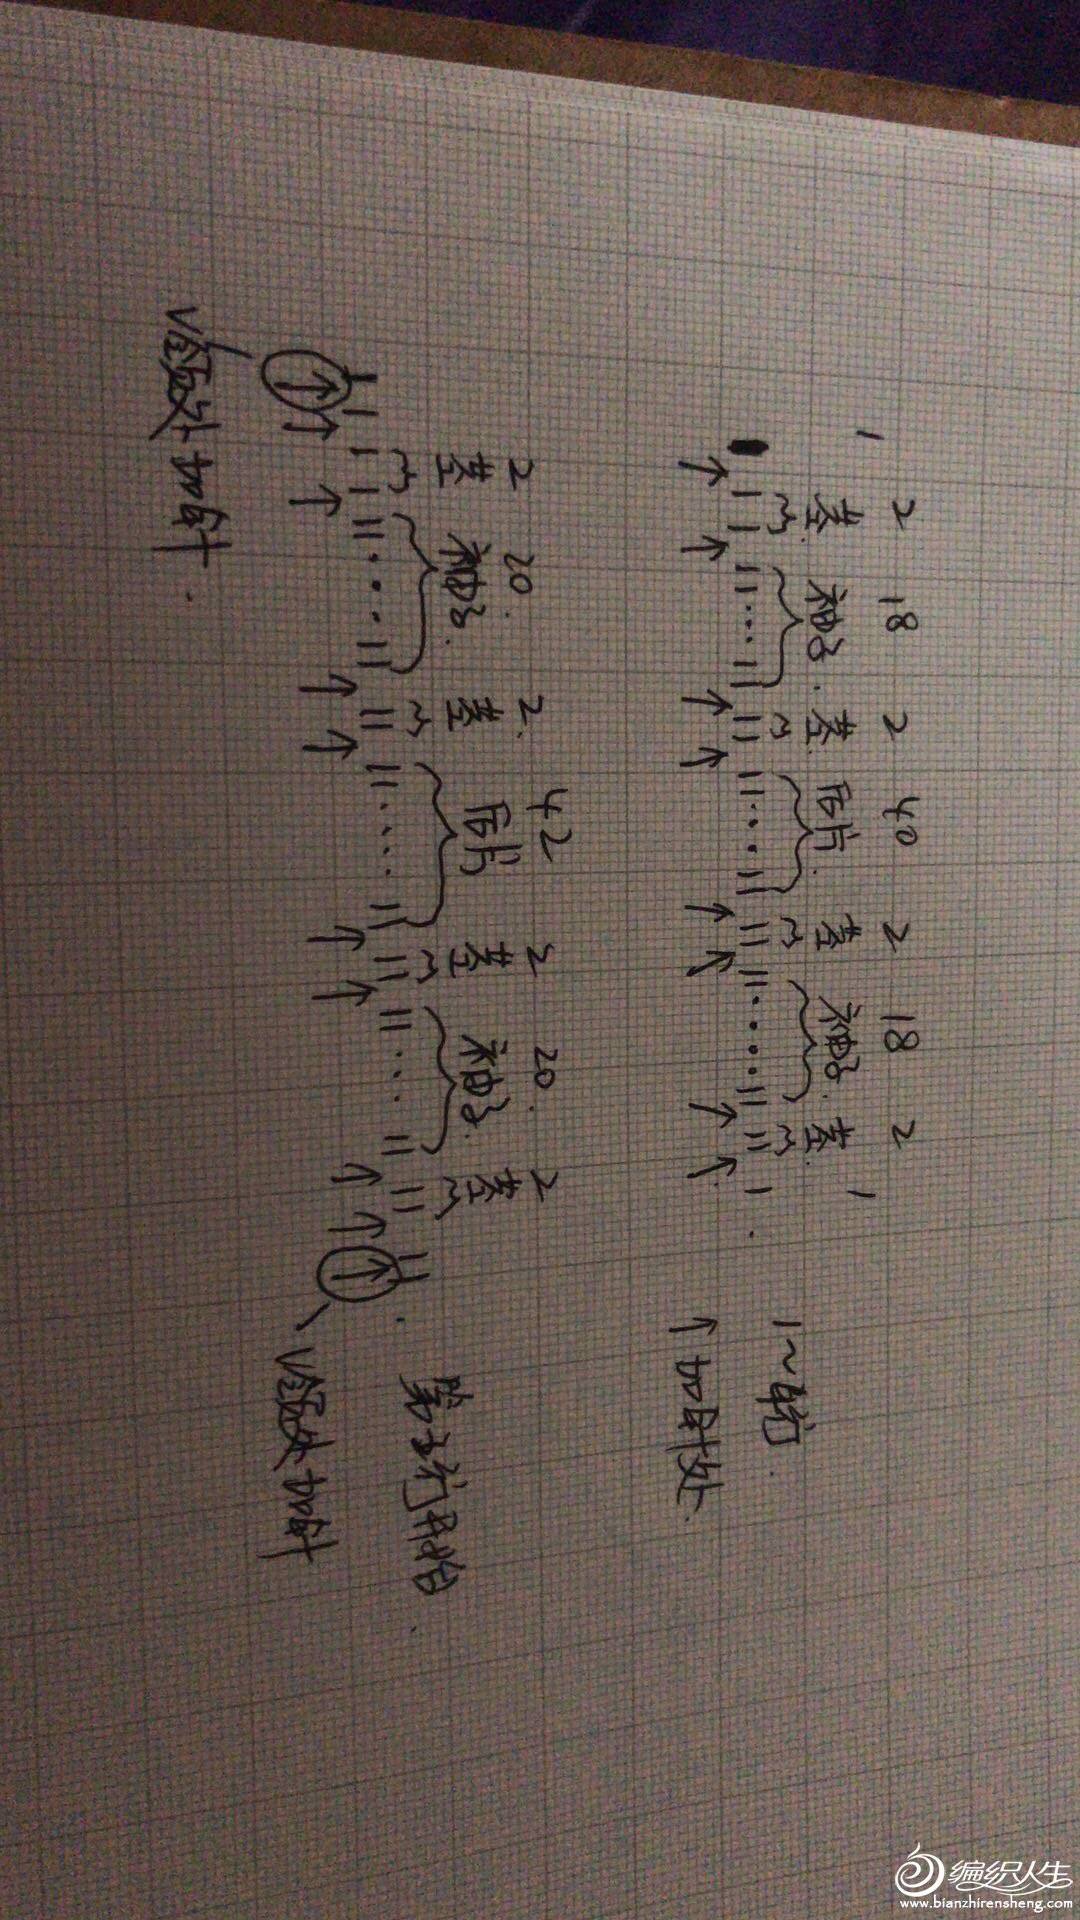 1 2 18 2 40 2 18 2 1
茎 袖子. 茎 后片 茎 袖子. 茎
1~4行
↑加针处
2 20. 2 42 2 20. 2
茎 袖子. 茎 后片 茎 袖子. 茎
第5行开始
V领处加针
V领处加针
编织人生
www.bianzhirensheng.com